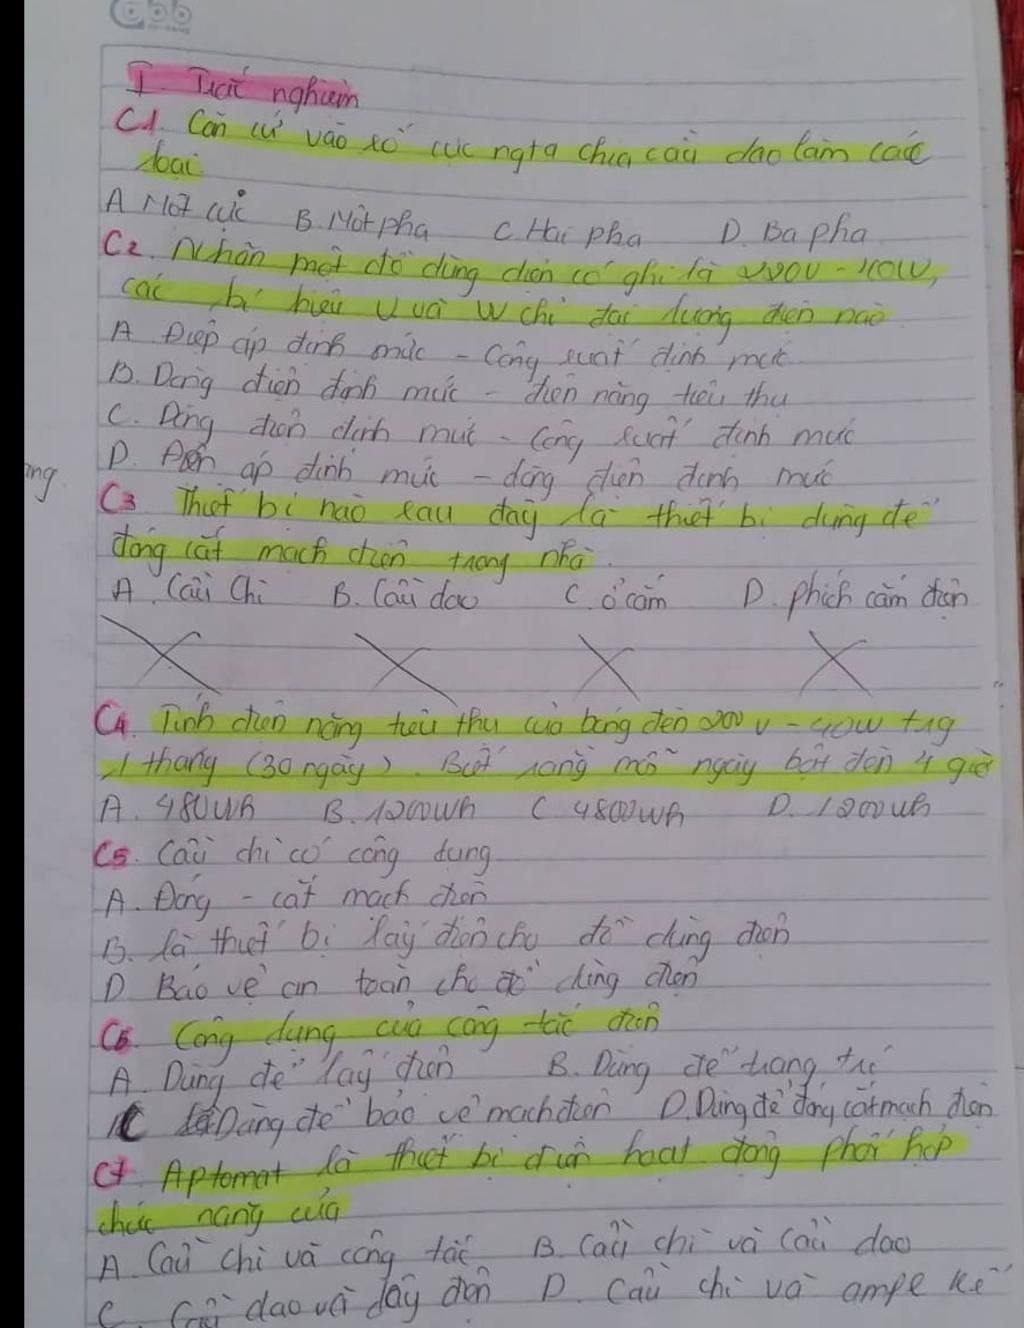 I. Trắc nghiệm
C1. Căn cứ vào số cực ngta chia cầu dao làm các
loại
A Một cực B. Một pha C. Hai pha D. Ba pha
C2. Nhãn một đồ dùng điện có ghi là 220V - 40W,
các kí hiệu V và W chỉ đại lượng điện nào
A Điện áp định mức - Công suất định mức
B. Dòng điện định mức - điện năng tiêu thụ
C. Dòng điện định mức - Công suất định mức
D. Điện áp định mức - dòng điện định mức
C3 Thiết bị nào sau đây là thiết bị dùng để
đóng cắt mạch điện trong nhà.
A. Cầu Chì B. Cầu dao C. ổ cắm D. phích cắm điện
C4. Tính điện năng tiêu thụ của bóng đèn 220V - 40W tng
1 tháng (30 ngày). Biết rằng mỗi ngày bật đèn 4 giờ
A. 480Wh B. 1200Wh C. 4800Wh D. 1200Wh
C5. Cầu chì có công dụng
A. Đóng - cắt mạch điện
B. là thiết bị lấy điện cho đồ dùng điện
D Bảo vệ an toàn cho đồ dùng điện
C6. Công dụng của công tắc điện
A. Dùng để lấy điện B. Dùng để trang trí
C Dùng để bảo vệ mạch điện D. Dùng để đóng cắt mạch điện
C7. Aptomat là thiết bị điện hoạt động phối hợp
chức năng của
A. Cầu chì và công tắc B. Cầu chì và Cầu dao
C. Cầu dao và dây điện D. Cầu chì và ampe kế